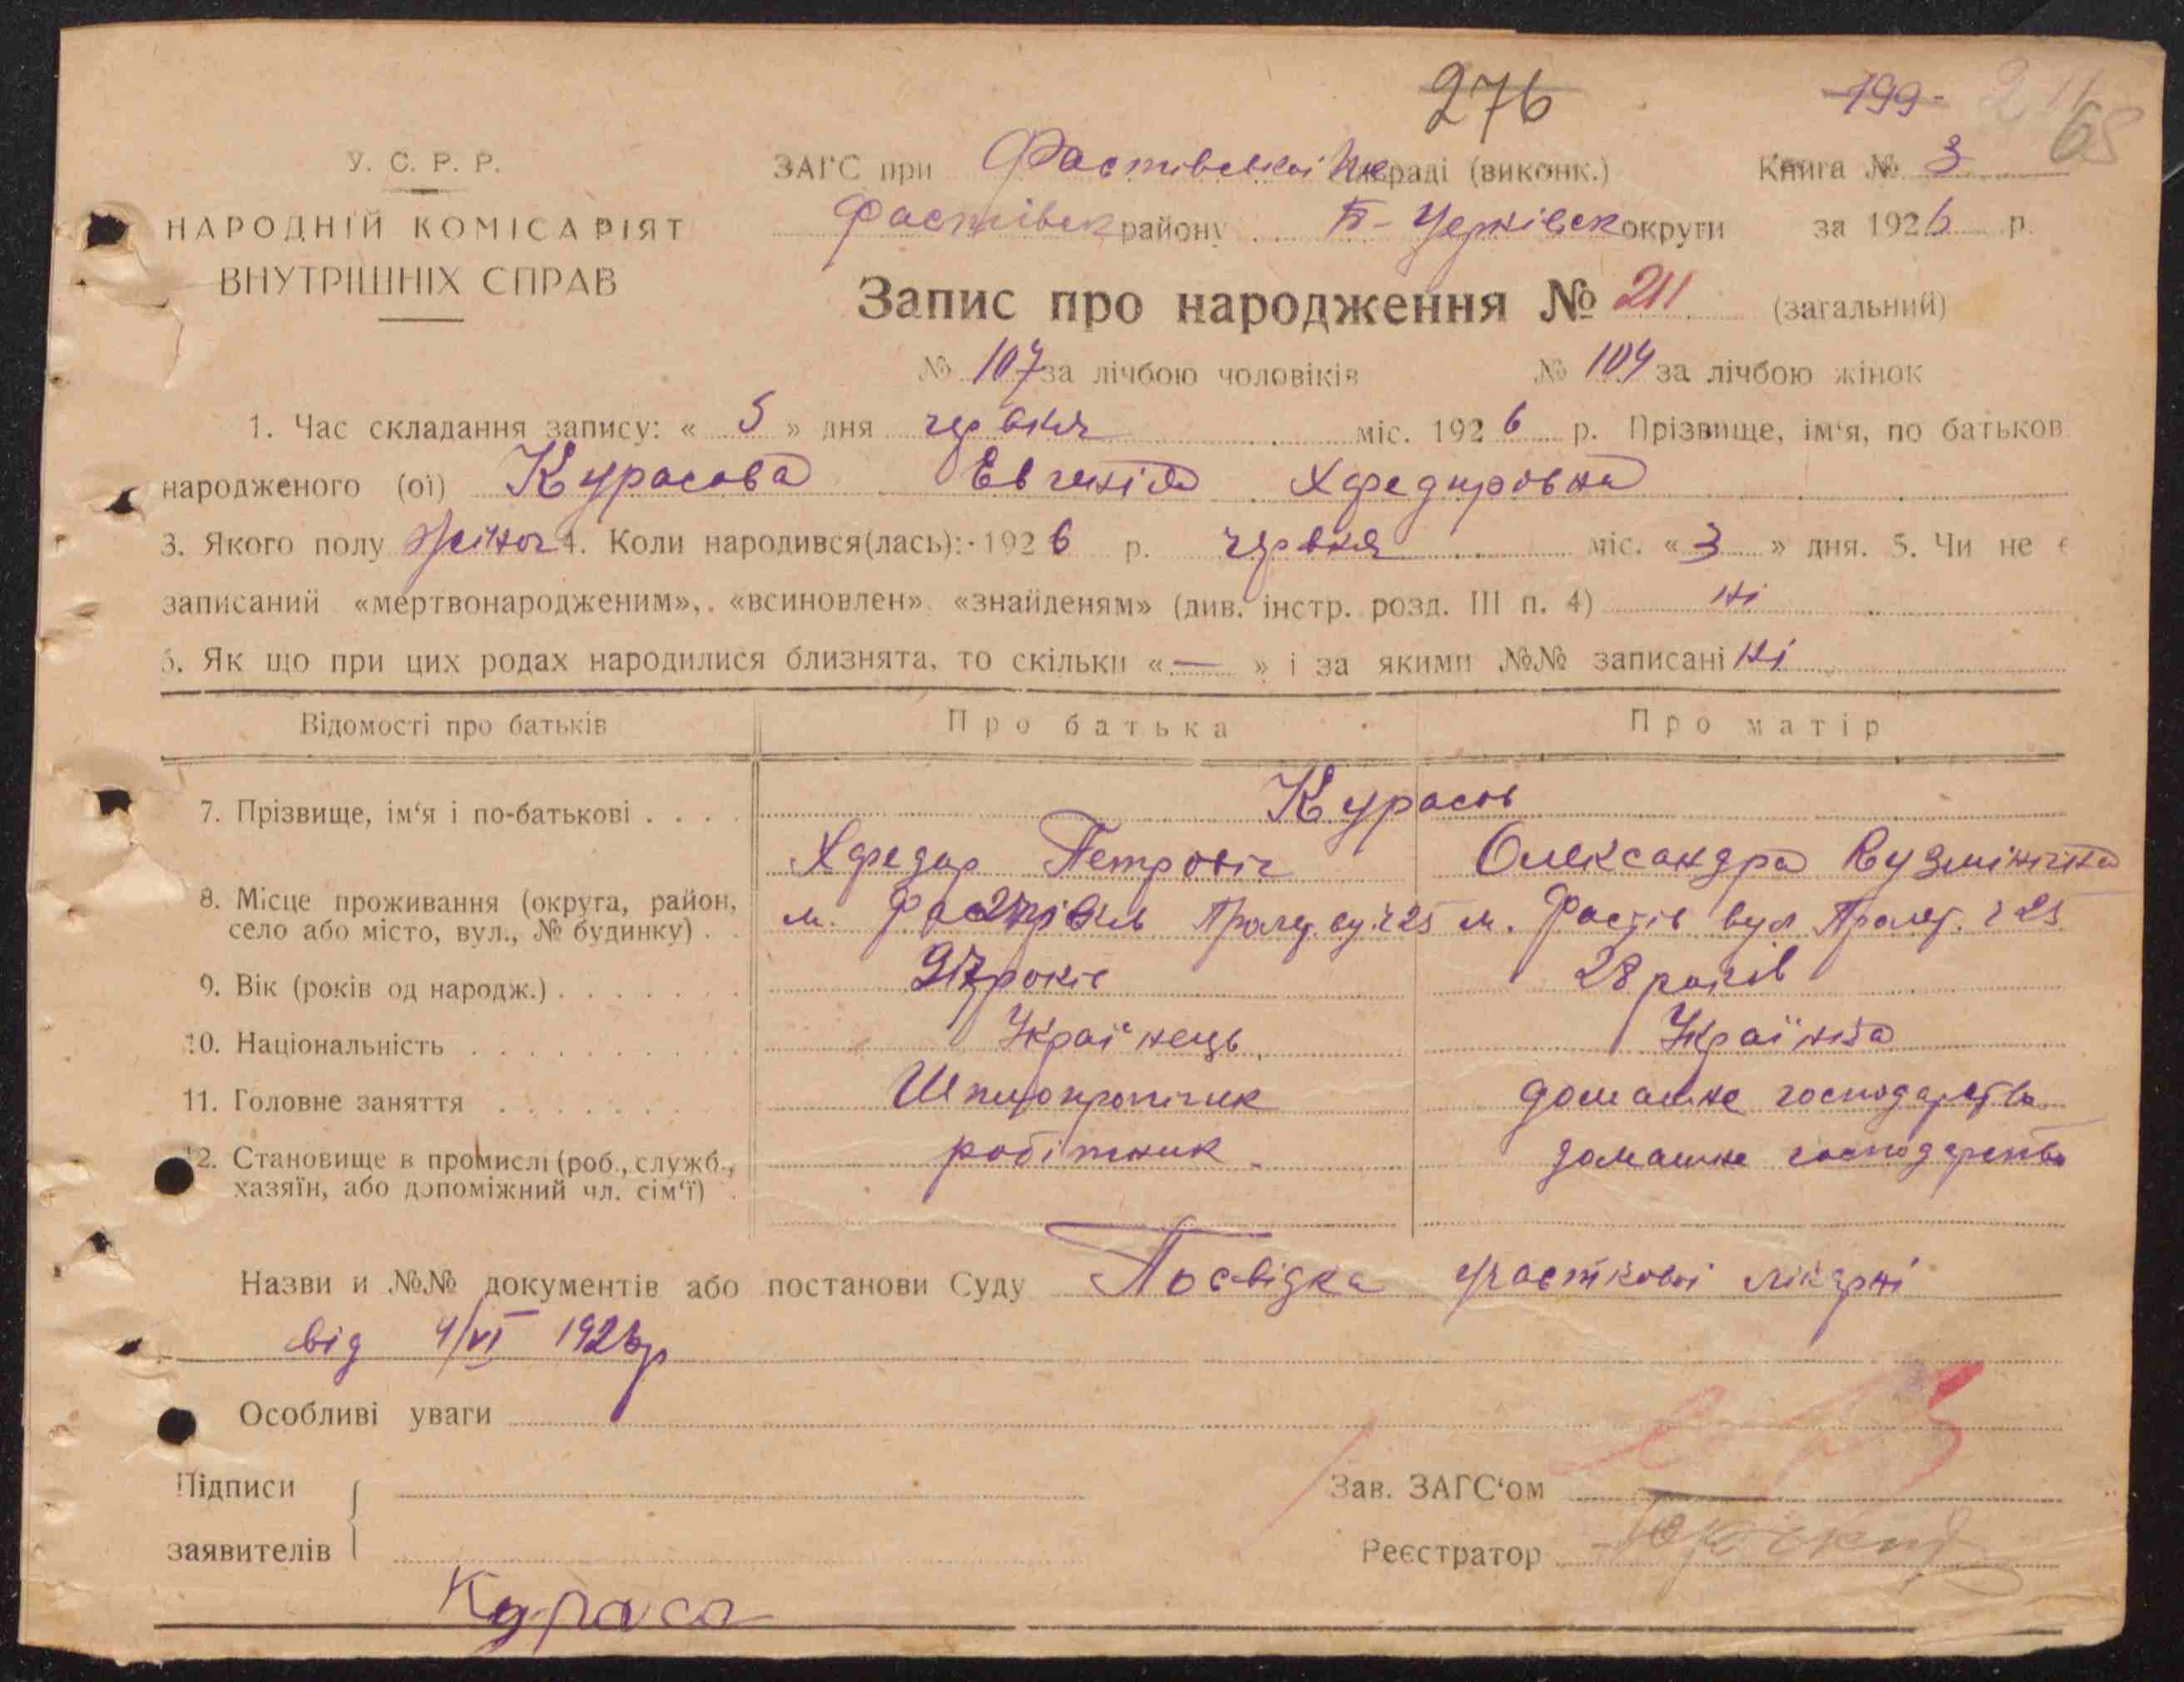 276
199- 211
68
У. С. Р. Р.
НАРОДНІЙ КОМІСАРІЯТ
ВНУТРІШНІХ СПРАВ
ЗАГС при Фастівській раді (виконк.) Книга № 3
Фастівськ району Б-Церківськ округи за 1926 р.
Запис про народження № 211 (загальний)
№ 107 за лічбою чоловіків № 104 за лічбою жінок
1. Час складання запису: « 5 » дня червня міс. 1926 р. Прізвище, ім'я, по батьков
народженого (ої) Курасова Евгенія Хфедировна
3. Якого полу жіноч 4. Коли народився(лась):-1926 р. червня міс. « 3 » дня. 5. Чи не є
записаний «мертвонародженим», «всиновлен» «знайденям» (див. інстр. розд. III п. 4) Ні
6. Як що при цих родах народилися близнята, то скільки « — » і за якими №№ записані Ні
Відомості про батьків Про батька Про матір
7. Прізвище, ім'я і по-батькові . . . . Курасов
Хфедир Петровіч Олександра Кузмінична
8. Місце проживання (округа, район, село або місто, вул., № будинку) . . м. Пролет. ву. 25 м. Фастів вул Пролет. 25
9. Вік (років од народж.) . . . . . . . років 28 років
10. Національність . . . . . . . . . . . Українець Українка
11. Головне заняття . . . . . . . . домашнє господарство
12. Становище в промислі (роб., служб., хазяїн, або допоміжний чл. сім'ї) . робітник домашнє господарство
Назви и №№ документів або постанови Суду Посвідка участкової лікарні
від 4/VI 1926р
Особливі уваги
Підписи
заявителів
Зав. ЗАГС'ом
Реєстратор
Кураса